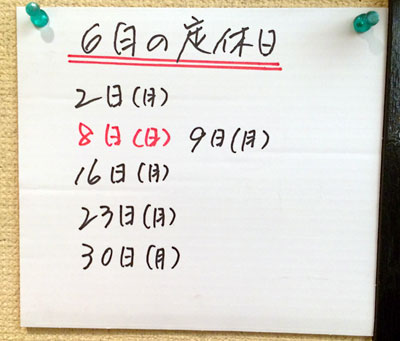 6月の定休日
2日(月)
8日(日) 9日(月)
16日(月)
23日(月)
30日(月)